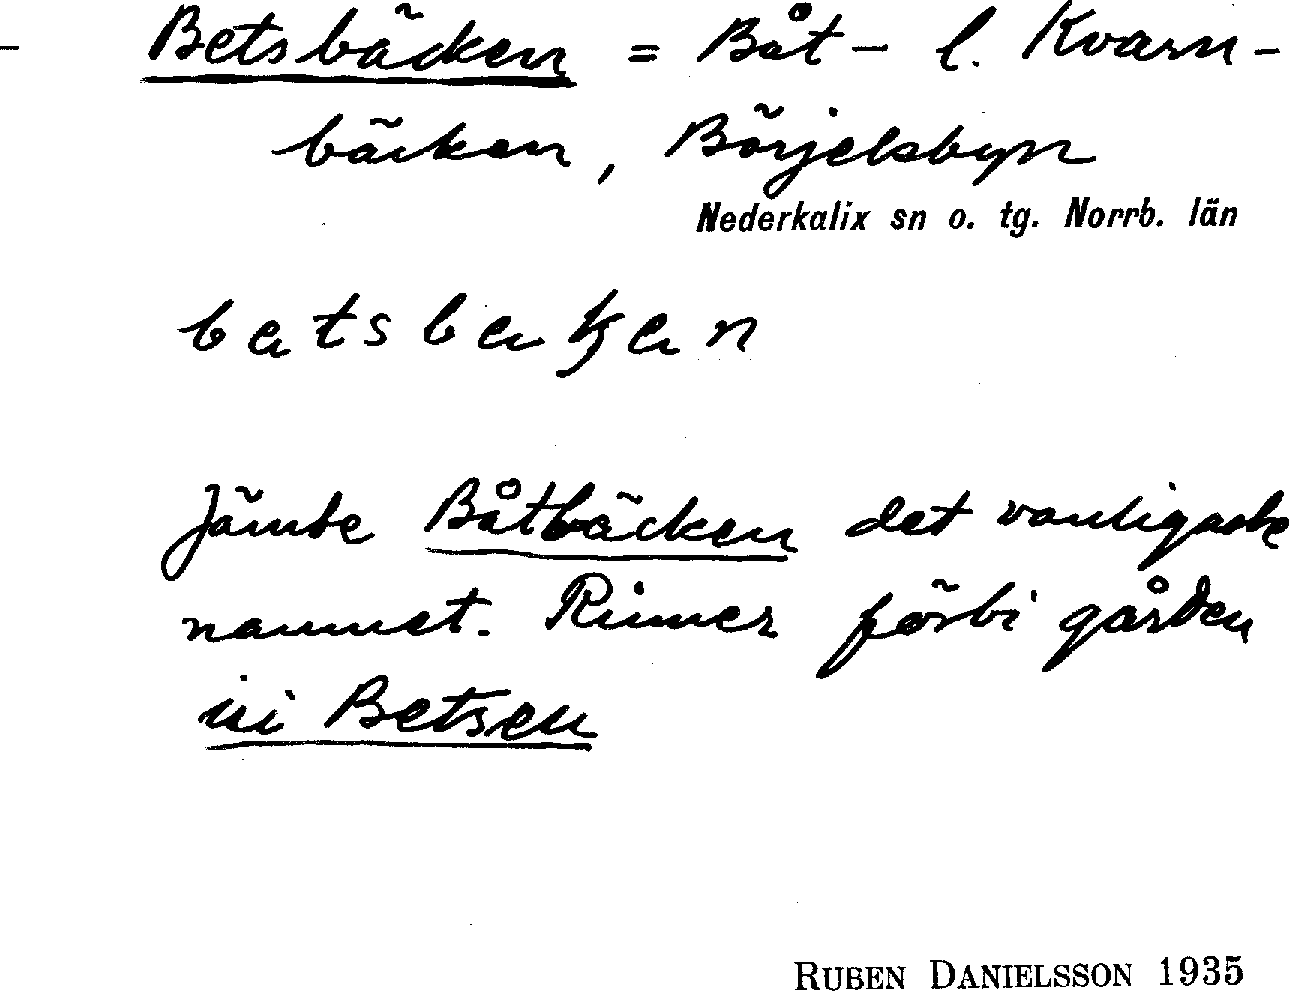 - Betsbäcken = Båt- l. Kvarn-
bäcken, Börjelsbyn
Nederkalix sn o. tg. Norrb. län
Jämte Båtbäcken det vanligaste
namnet. Rinner förbi gården
ini Betsen
RUBEN DANIELSSON 1935